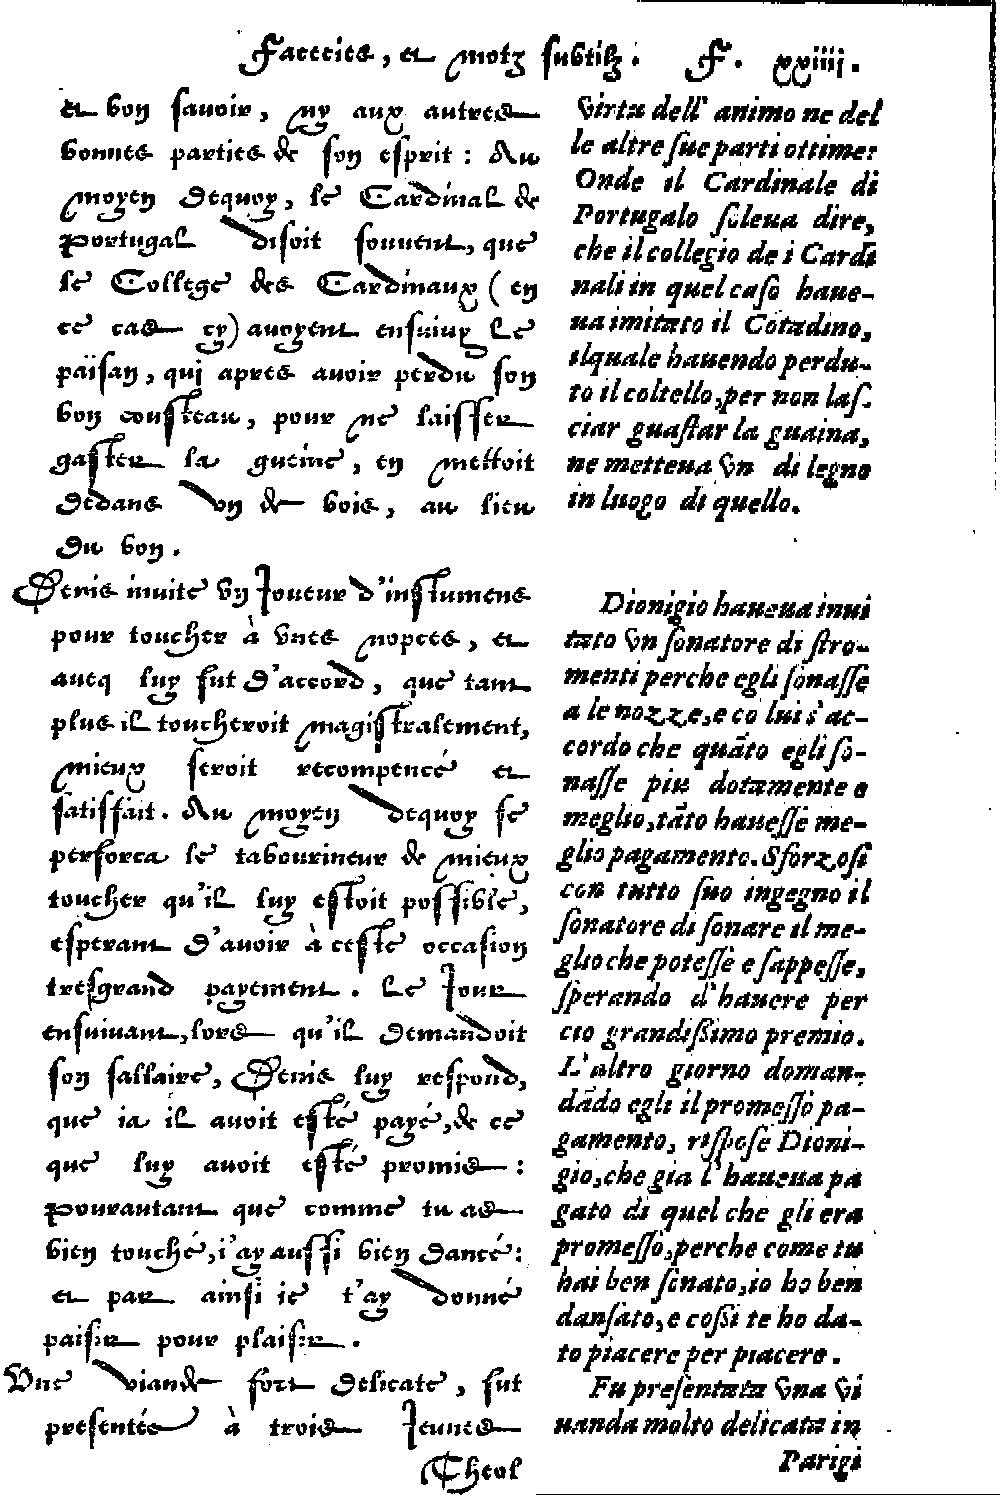 Facecies, et motz subtilz. F. xxiiij.
et bon savoir, ny aux autres
bonnes parties de son esprit: Au
moyen dequoy, le Cardinal de
Portugal disoit souvent, que
le College des Cardinaux (en
ce cas cy) avoyent ensuivy le
païsan, qui apres avoir perdu son
bon cousteau, pour ne laisser
gaster la gueine, en mettoit
dedans vn de bois, au lieu
du bon.
Denis invite vn Joueur d'instumens
pour toucher à vnes nopces, et
avecq luy fut d'accord, que tant
plus il toucheroit magistralement,
mieux seroit recompencé et
satisfait. Au moyen dequoy se
perforca le tabourineur de mieux
toucher qu'il luy estoit possible,
esperant d'avoir à ceste occasion
tresgrand payement. Le Jour
ensuivant, lors qu'il demandoit
son sallaire, Denis luy respond,
que ia il avoit esté payé, de ce
que luy avoit esté promis:
pourautant que comme tu as
bien touché, i'ay aussi bien dancé:
et par ainsi ie t'ay donné
paisir pour plaisir.
Vne viande fort delicate, fut
presentée à trois Jeunes
Theol
virtu dell' animo ne del
le altre ſue parti ottime:
Onde il Cardinale di
Portugalo ſoleua dire,
che il collegio de i Cardi
nali in quel caſo haue-
ua imitato il Cotadino,
ilquale hauendo perdu-
to il coltello, per non laſ-
ciar guaſtar la guaina,
ne metteua vn di legno
in luogo di quello.
Dionigio haueua inui
tato vn ſonatore di ſtro-
menti perche egli ſonaſſe
a le nozze, e co lui s'ac-
cordo che quāto egli ſo-
naſſe piu dotamente o
meglio, tāto haueſſe me-
glio pagamento. Sforzoſi
con tutto ſuo ingegno il
ſonatore di ſonare il me-
glio che poteſſe e ſappeſſe,
ſperando d'hauere per
cio grandiſſimo premio.
L'altro giorno doman-
dādo egli il promeſſo pa-
gamento, riſpoſe Dioni-
gio, che gia l'haueua pa
gato di quel che gli era
promeſſo, perche come tu
hai ben ſonato, io ho ben
danſato, e coſſi te ho da-
to piacere per piacere.
Fu preſentata vna vi
uanda molto delicata in
Parigi